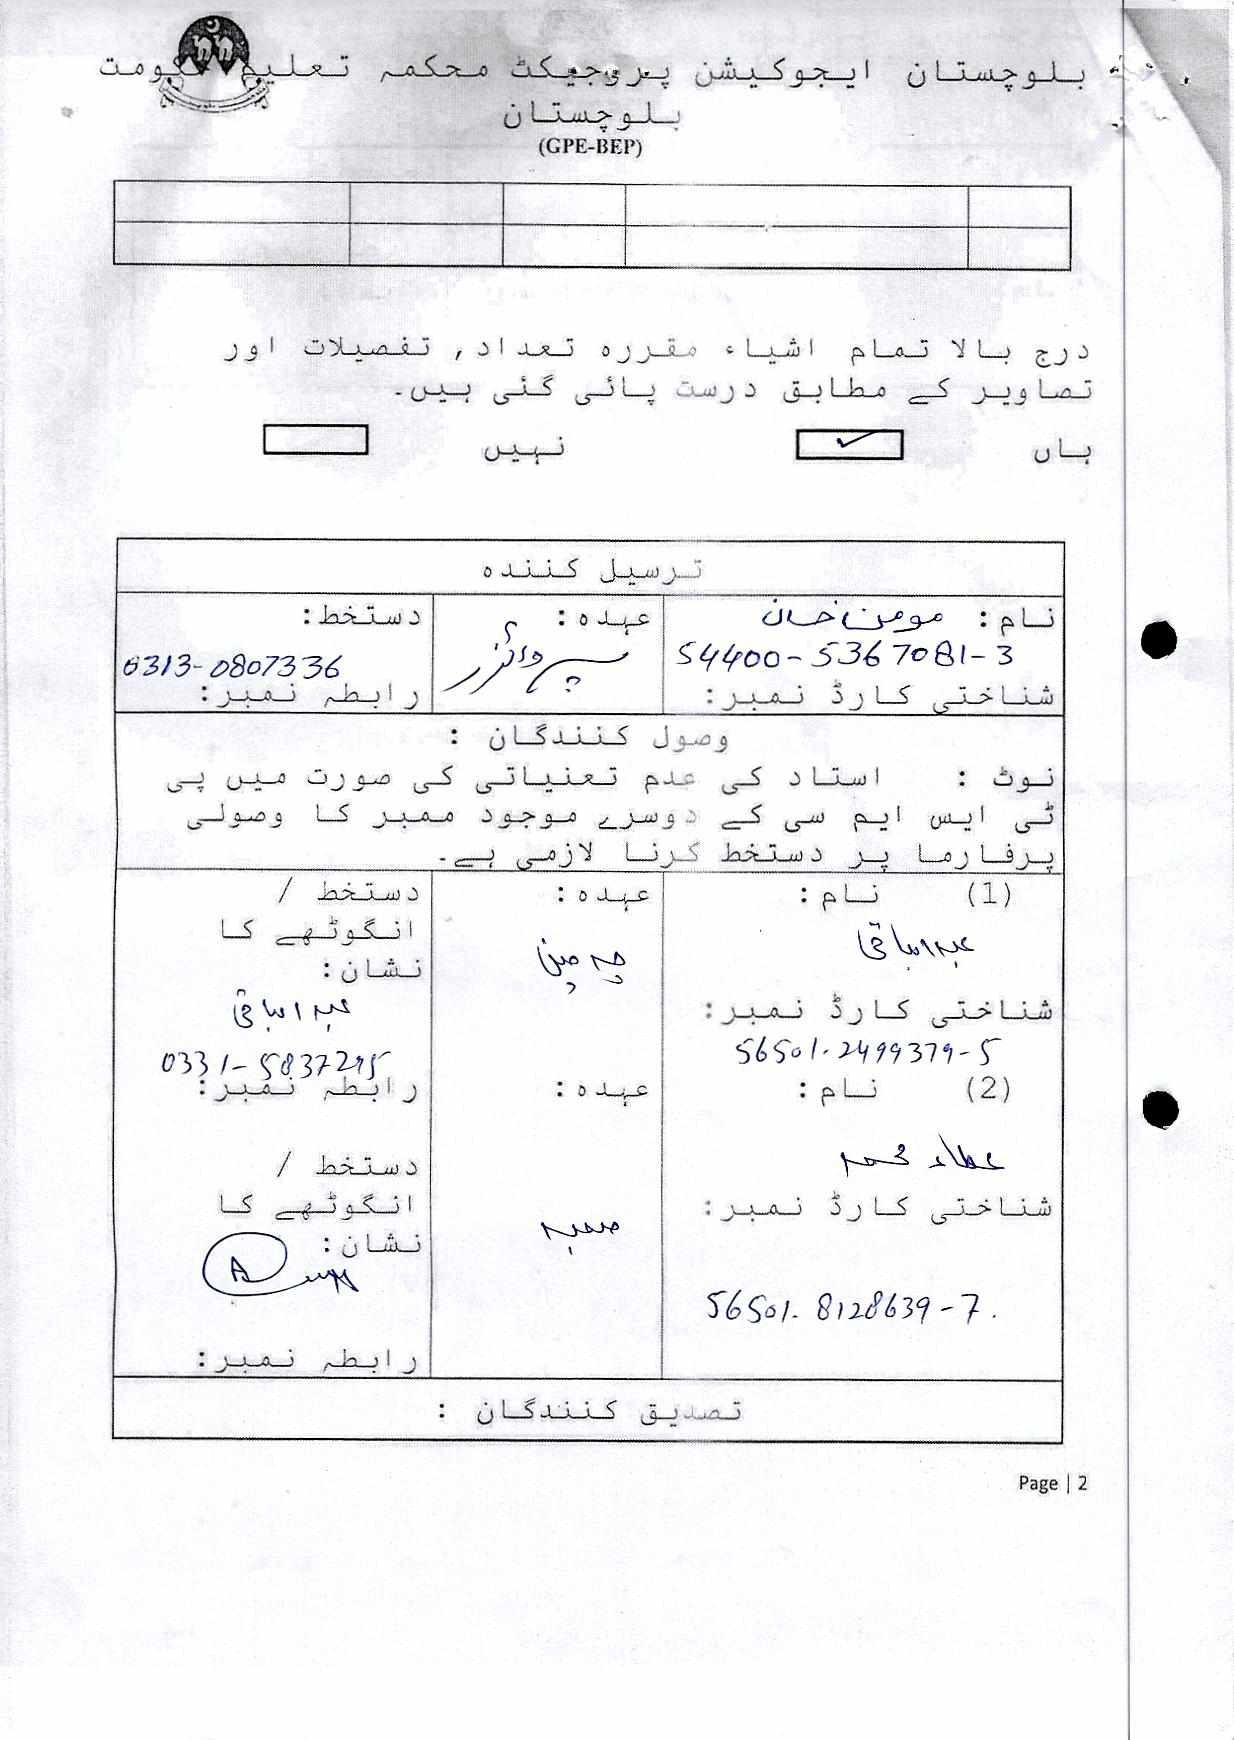 بلوچستان ایجوکیشن پروجیکٹ محکمہ تعلیم حکومت
بلوچستان
(GPE-BEP)
درج بالا تمام اشیاء مقررہ تعداد, تفصیلات اور
تصاویر کے مطابق درست پائی گئی ہیں۔
ہاں ✓ نہیں
ترسیل کنندہ
نام: مومن خان
54400-5367081-3
شناختی کارڈ نمبر:
عہدہ:
سپروائزر
دستخط:
0313-0807336
رابطہ نمبر:
وصول کنندگان :
نوٹ : استاد کی عدم تعنیاتی کی صورت میں پی
ٹی ایس ایم سی کے دوسرے موجود ممبر کا وصولی
پرفارما پر دستخط کرنا لازمی ہے۔
(1) نام:
عبدالباقی
شناختی کارڈ نمبر:
56501-2499379-5
عہدہ:
چیرمین
دستخط /
انگوٹھے کا
نشان:
عبدالباقی
0331-5837295
رابطہ نمبر:
(2) نام:
عطاء محمد
شناختی کارڈ نمبر:
56501-8128639-7.
عہدہ:
دستخط /
انگوٹھے کا
نشان:
رابطہ نمبر:
تصدیق کنندگان :
Page | 2